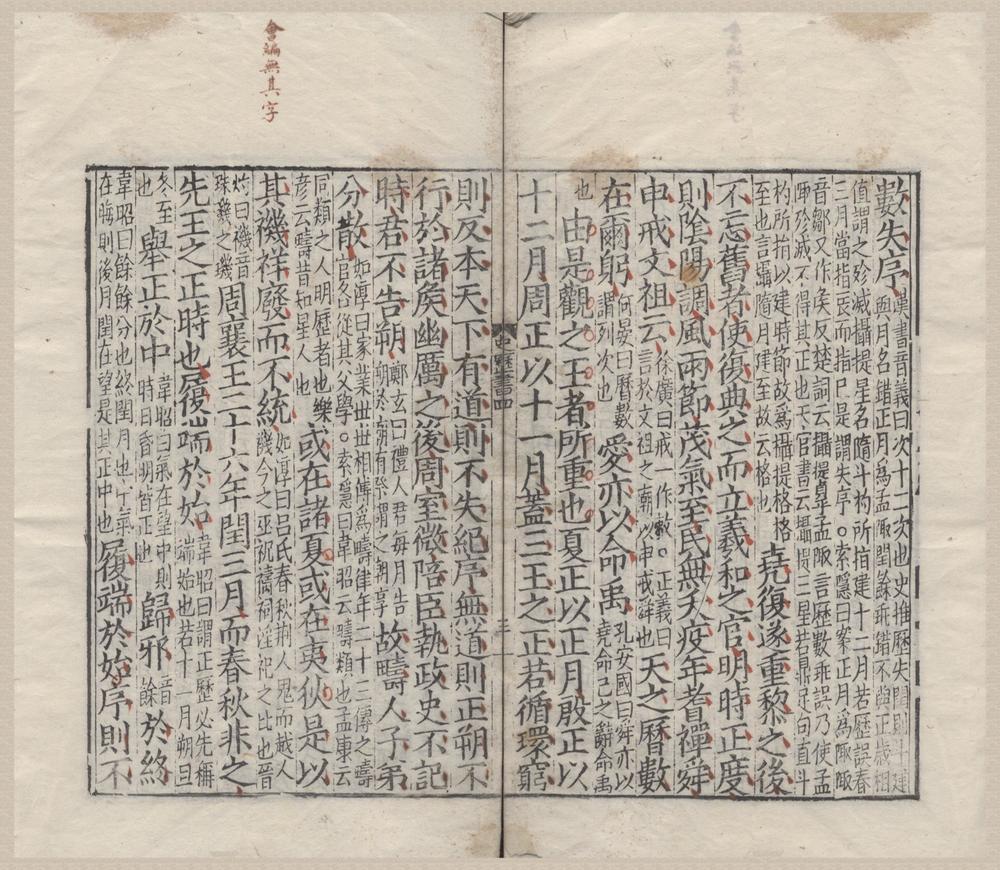 會編無其字
數失序漢書音義曰次十二次也史推歷失閏則斗建
與月名錯正月為孟陬閏餘乖錯不與正歲相
值謂之殄滅攝提星名隨斗杓所指建十二月若歷誤春
三月當指辰而指巳是謂失序○索隱曰案正月為陬陬
音鄒又作侯反楚詞云攝提貞孟陬言歷數乖誤乃使孟
陬殄滅不得其正也天官書云攝提三星若鼎足句直斗
杓所指以建時節故為攝提格格
至也言攝隨月建至故云格也堯復遂重黎之後
不忘舊者使復典之而立羲和之官明時正度
則陰陽調風雨節茂氣至民無夭疫年耆禪舜
申戒文祖云徐廣曰戒一作敕○正義曰言於文祖之廟以申戒舜也天之曆數
在爾躬何晏曰曆數謂列次也愛亦以命禹孔安國曰舜亦以堯命己之辭命禹
也由是觀之王者所重也夏正以正月殷正以
十二月周正以十一月蓋三王之正若循環窮
史歷書四
則反本天下有道則不失紀序無道則正朔不
行於諸矦幽厲之後周室微陪臣執政史不記
時君不告朔鄭玄曰禮人君每月告朔於廟有祭謂之朝享故疇人子弟
分散如淳曰家業世世相傳為疇律年二十三傳之疇
官各從其父學○索隱曰韋昭云疇類也孟康云
同類之人明歷者也樂彥云疇昔知星人也或在諸夏或在夷狄是以
其禨祥廢而不統如淳曰呂氏春秋荆人鬼而越人禨今之巫祝禱祠淫祀之比也晉
灼曰禨音珠璣之璣周襄王二十六年閏三月而春秋非之
先王之正時也履端於始韋昭曰謂正歷必先稱端始也若十一月朔旦
冬至也舉正於中韋昭曰氣在望中則時日昏明皆正也歸邪音餘於終
韋昭曰餘餘分也終閏月也中氣在晦則後月閏在望是其正中也履端於始序則不